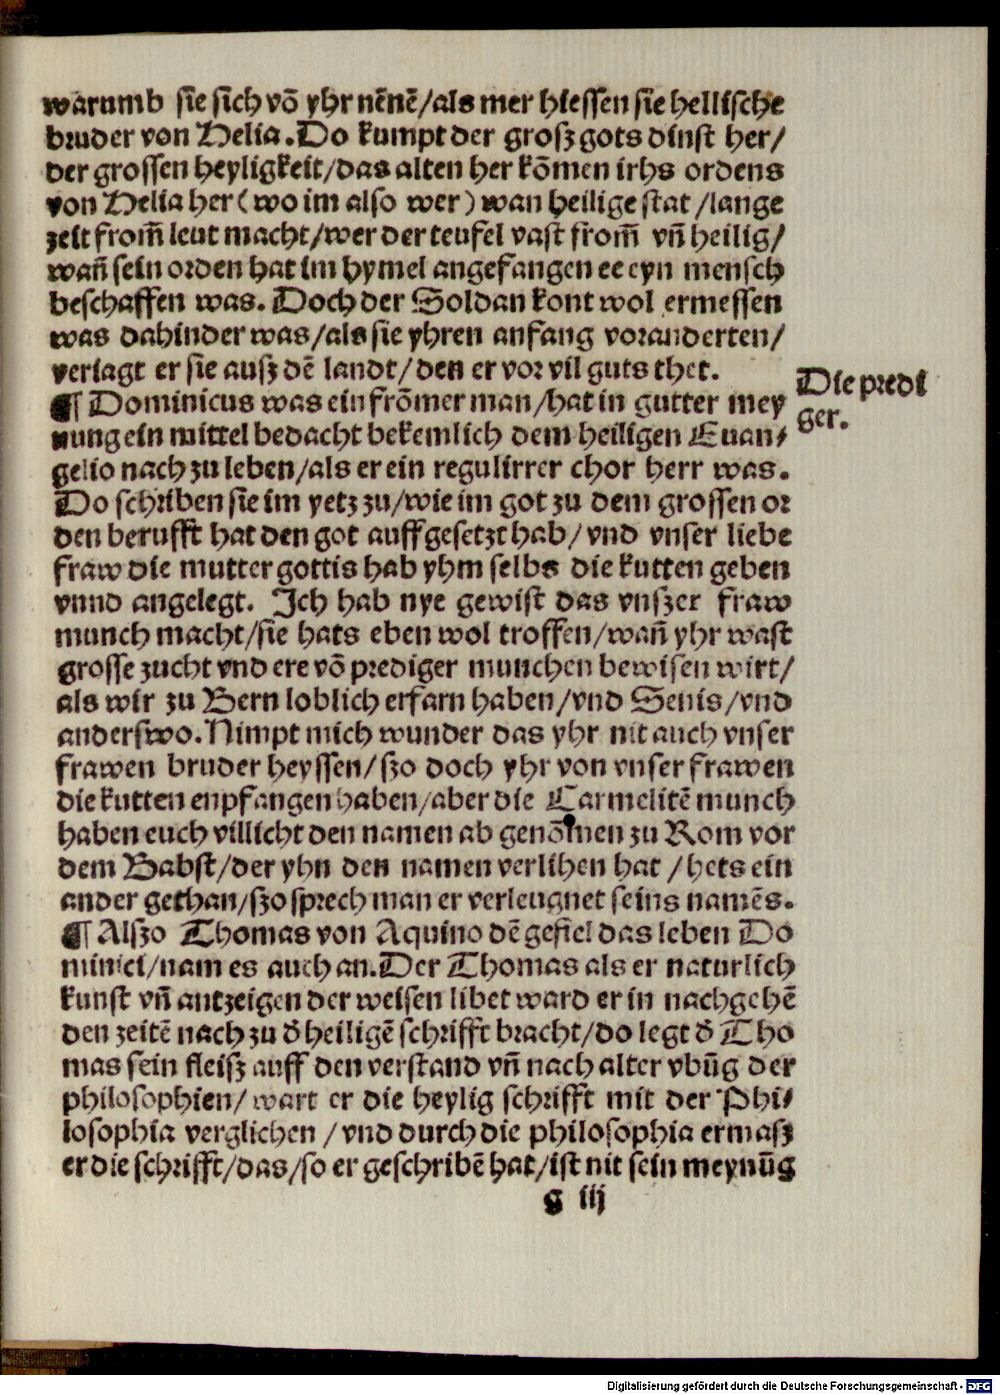 warumb sie sich võ yhr nẽnẽ/als mer hiessen sie hellische
bruder von Helia. Do kumpt der grosz gots dinst her/
der grossen heyligkeit/das alten her kõmen irhs ordens
von Helia her (wo im also wer) wan heilige stat/lange
zeit from̃ leut macht/wer der teufel vast from̃ vñ heilig/
wañ sein orden hat im hymel angefangen ee eyn mensch
beschaffen was. Doch der Soldan kont wol ermessen
was dahinder was/als sie yhren anfang voranderten/
veriagt er sie ausz dẽ landt/den er vor vil guts thet.
Die predi
ger.
¶ Dominicus was ein frõmer man/hat in gutter mey
nung ein mittel bedacht bekemlich dem heiligen Euan⸗
gelio nach zu leben/als er ein regulirrer chor herr was.
Do schriben sie im yetz zu/wie im got zu dem grossen or
den berufft hat den got auffgesetzt hab/vnd vnser liebe
fraw die mutter gottis hab yhm selbs die kutten geben
vnnd angelegt. Ich hab nye gewist das vnszer fraw
munch macht/sie hats eben wol troffen/wañ yhr wast
grosse zucht vnd ere võ prediger munchen bewisen wirt/
als wir zu Bern loblich erfarn haben/vnd Senis/vnd
anderswo. Nimpt mich wunder das yhr nit auch vnser
frawen bruder heyssen/szo doch yhr von vnser frawen
die kutten enpfangen haben/aber die Carmelitẽ munch
haben euch villicht den namen ab genõmen zu Rom vor
dem Babst/der yhn den namen verlihen hat/hets ein
ander gethan/szo sprech man er verleugnet seins namẽs.
¶ Alszo Thomas von Aquino dẽ gefiel das leben Do
minici/nam es auch an. Der Thomas als er naturlich
kunst vñ antzeigen der weisen libet ward er in nachgehẽ
den zeitẽ nach zu d̕ heiligẽ schrifft bracht/do legt d̕ Tho
mas sein fleisz auff den verstand vñ nach alter vbũg der
philosophien/wart er die heylig schrifft mit der Phi⸗
losophia verglichen/vnd durch die philosophia ermasz
er die schrifft/das/so er geschribẽ hat/ist nit sein meynũg
g iij
Digitalisierung gefördert durch die Deutsche Forschungsgemeinschaft - DFG